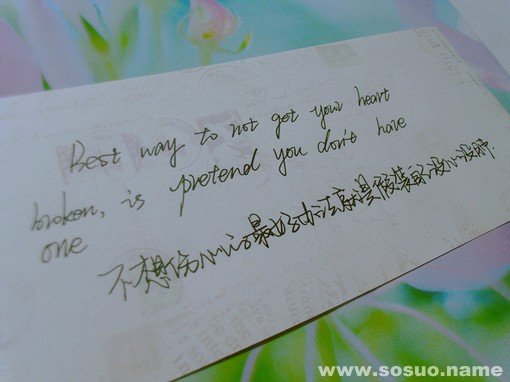 Best way to not get your heart
broken, is pretend you don't have
one
不想伤心的最好办法就是假装自己没心没肺.
www.sosuo.name